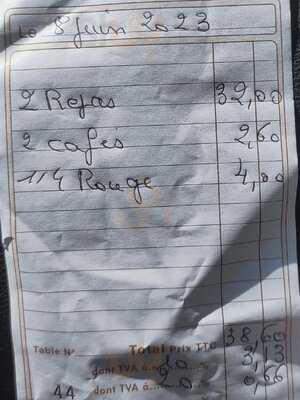 Le 8 juin 2023
2 Repas 32,00
2 cafés 2,60
1/4 Rouge 4,00
Table N° Total Prix TTC 38,60
dont TVA à 10 3,13
44 dont TVA à 20 0,66